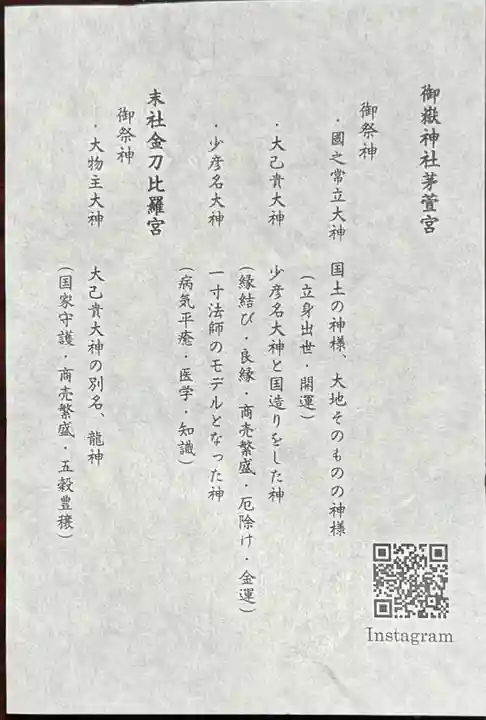 御嶽神社茅萱宮
御祭神
・國之常立大神 国土の神様、大地そのものの神様
(立身出世・開運)
・大己貴大神 少彦名大神と国造りをした神
(縁結び・良縁・商売繁盛・厄除け・金運)
・少彦名大神 一寸法師のモデルとなった神
(病気平癒・医学・知識)
末社金刀比羅宮
御祭神
・大物主大神 大己貴大神の別名、龍神
(国家守護・商売繁盛・五穀豊穣)
Instagram